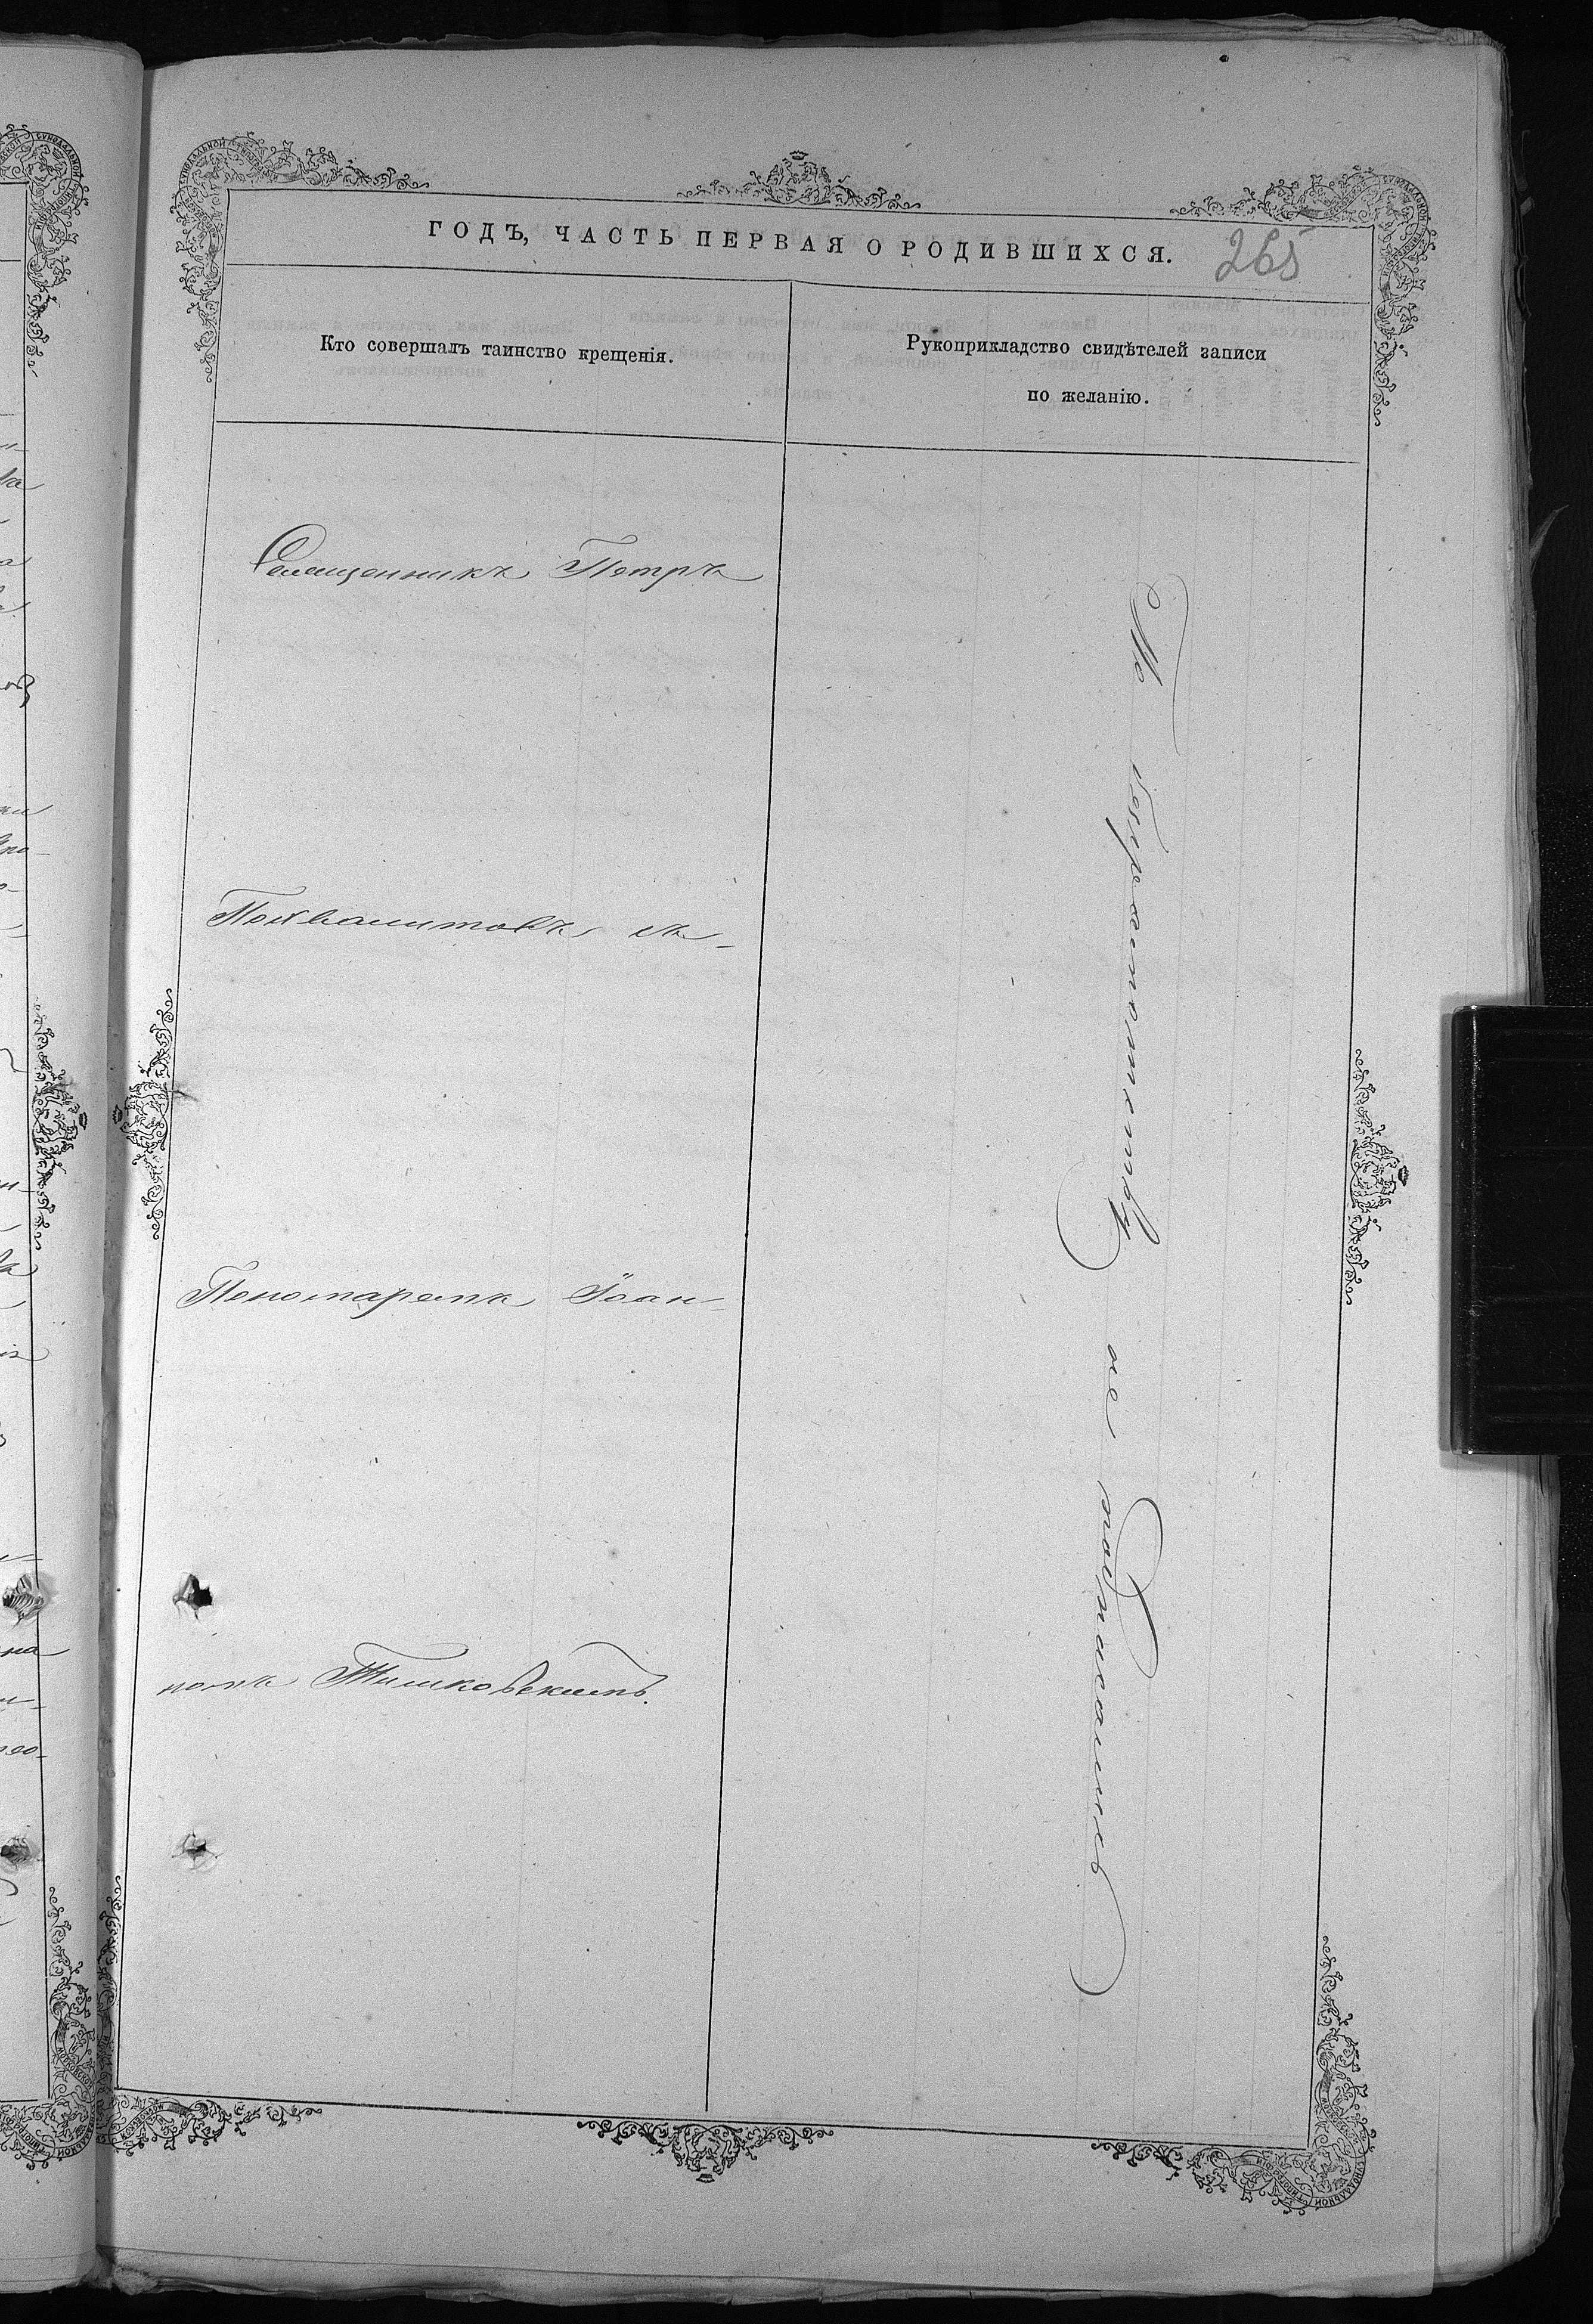 ГОДЪ, ЧАСТЬ ПЕРВАЯ О РОДИВШИХСЯ.
265
Кто совершалъ таинство крещенія.
Рукоприкладство свидѣтелей записи
по желанію.
Священникъ Петръ
Похвалитовъ съ
Пономаремъ Іоан-
номъ Тишковскимъ.
По безграмотству не подписались